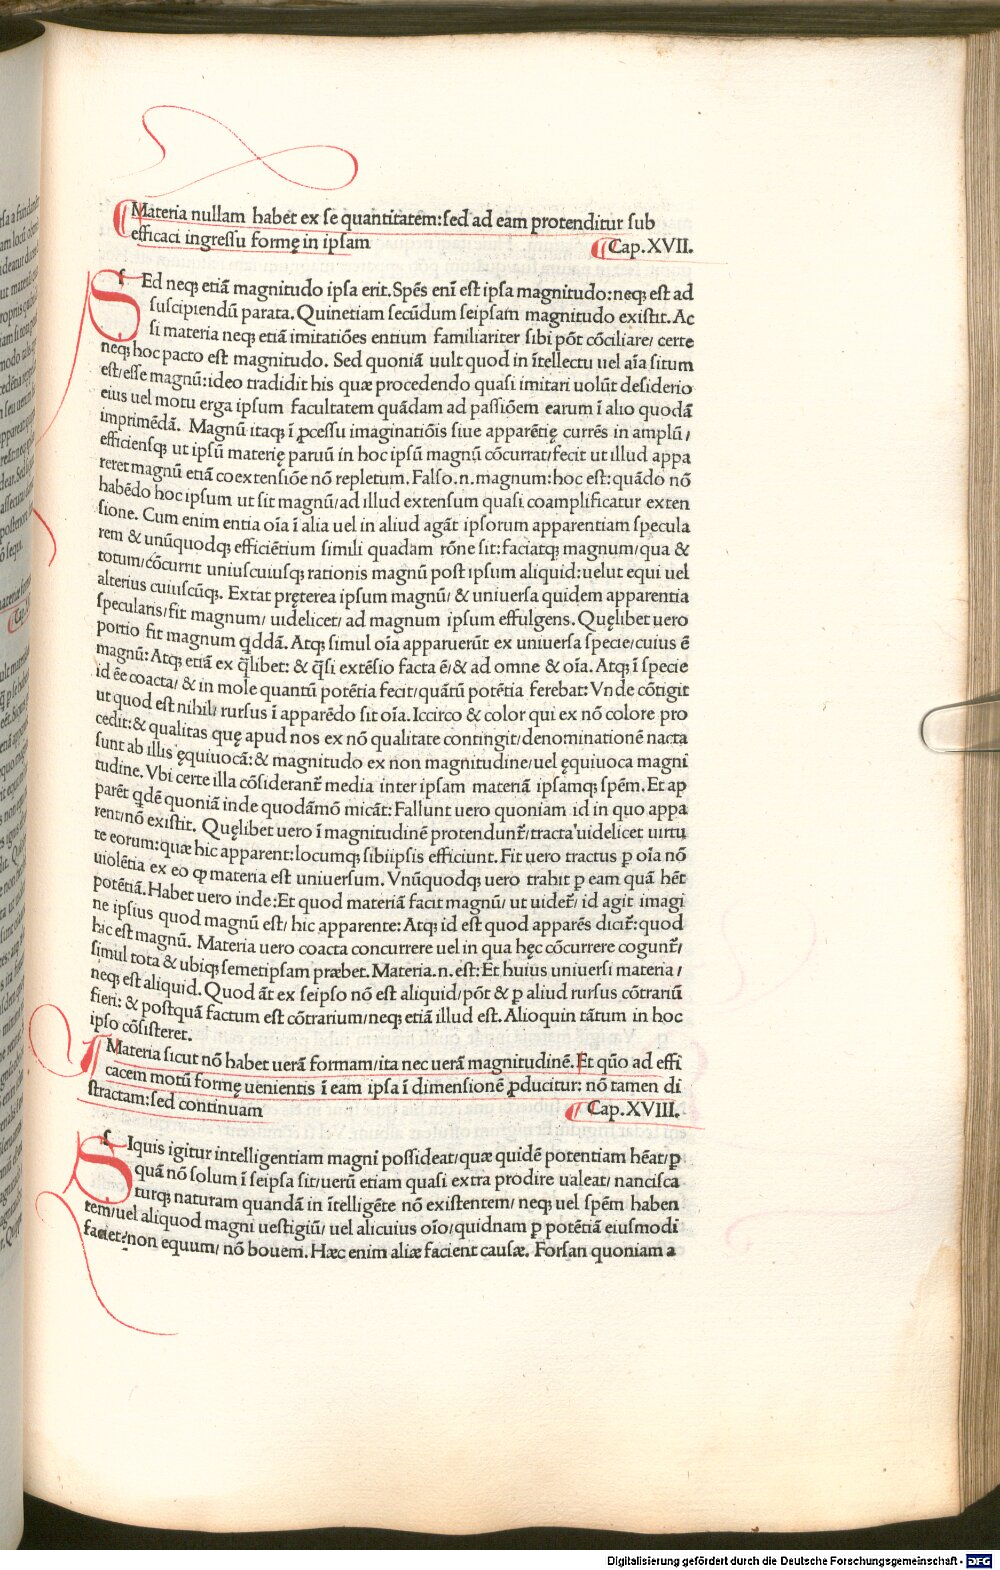 Materia nullam habet ex se quantitatem:sed ad eam protenditur sub
efficaci ingressu formę in ipsam Cap.XVII.
SEd neqꝫ etiã magnitudo ipsa erit.Spẽs enĩ est ipsa magnitudo:neqꝫ est ad
suscipiendũ parata. Quinetiam secũdum seipsam magnitudo existit. Ac
si materia neqꝫ etiã imitatiões entium familiariter sibi põt cõciliare/ certe
neqꝫ hoc pacto est magnitudo. Sed quoniã uult quod in ĩtellectu uel aĩa situm
est/esse magnũ:ideo tradidit his quæ procedendo quasi imitari uolũt desiderio
eius uel motu erga ipsum facultatem quãdam ad passiõem earum ĩ alio quodã
imprimẽdã. Magnũ itaqꝫ ĩ ꝓcessu imaginatiõis siue apparẽtię currẽs in amplũ/
efficiensqꝫ ut ipsũ materię paruũ in hoc ipsũ magnũ cõcurrat/fecit ut illud appa
reret magnũ etiã coextensiõe nõ repletum. Falso.n.magnum:hoc est:quãdo nõ
habẽdo hoc ipsum ut sit magnũ/ad illud extensum quasi coamplificatur exten
sione. Cum enim entia oĩa ĩ alia uel in aliud agãt ipsorum apparentiam specula
rem & unũquodqꝫ efficiẽtium simili quadam rõne sit:faciatqꝫ magnum/qua &
totum/cõcurrit uniuscuiusqꝫ rationis magnũ post ipsum aliquid:uelut equi uel
alterius cuiuscũqꝫ. Extat pręterea ipsum magnũ/ & uniuersa quidem apparentia
specularis/fit magnum/ uidelicet/ ad magnum ipsum effulgens. Quęlibet uero
portio fit magnum qddã. Atqꝫ simul oĩa apparuerũt ex uniuersa specie/cuius ẽ
magnũ: Atqꝫ etiã ex q̃libet: & q̃si extẽsio facta ẽ/& ad omne & oĩa. Atqꝫ ĩ specie
id ẽe coacta/ & in mole quantũ potẽtia fecit/quãtũ potẽtia ferebat: Vnde cõtigit
ut quod est nihil/ rursus ĩ apparẽdo sit oĩa. Iccirco & color qui ex nõ colore pro
cedit:& qualitas quę apud nos ex nõ qualitate contingit/denominationẽ nacta
sunt ab illis ęquiuocã:& magnitudo ex non magnitudine/uel ęquiuoca magni
tudine. Vbi certe illa cõsiderant̃ media inter ipsam materiã ipsamqꝫ spẽm. Et ap
parẽt qdẽ quoniã inde quodãmõ micãt: Fallunt uero quoniam id in quo appa
rent/nõ existit. Quęlibet uero ĩ magnitudinẽ protendunt̃/tracta uidelicet uirtu
te eorum:quæ hic apparent:locumqꝫ sibiipsis efficiunt. Fit uero tractus ꝑ oĩa nõ
uiolẽtia ex eo ꝙ materia est uniuersum. Vnũquodqꝫ uero trahit ꝑ eam quã hẽt
potẽtiã. Habet uero inde:Et quod materiã facit magnũ/ ut uidet̃/ id agit imagi
ne ipsius quod magnũ est/ hic apparente: Atqꝫ id est quod apparẽs dicit̃:quod
hic est magnũ. Materia uero coacta concurrere uel in qua hęc cõcurrere cogunt̃/
simul tota & ubiqꝫ semetipsam præbet. Materia.n.est: Et huius uniuersi materia/
neqꝫ est aliquid. Quod ãt ex seipso nõ est aliquid/põt & ꝑ aliud rursus cõtrariũ
fieri: & postquã factum est cõtrarium/neqꝫ etiã illud est. Alioquin tãtum in hoc
ipso cõsisteret.
Materia sicut nõ habet uerã formam/ita nec uerã magnitudinẽ. Et qũo ad effi
cacem motũ formę uenientis ĩ eam ipsa ĩ dimensionẽ ꝓducitur: nõ tamen di
stractam:sed continuam Cap.XVIII.
SIquis igitur intelligentiam magni possideat/quæ quidẽ potentiam hẽat/ꝑ
quã nõ solum ĩ seipsa sit/uerũ etiam quasi extra prodire ualeat/ nancisca
turqꝫ naturam quandã in ĩtelligẽte nõ existentem/ neqꝫ uel spẽm haben
tem/uel aliquod magni uestigiũ/ uel alicuius oĩo/quidnam ꝑ potẽtiã eiusmodi
faciet?non equum/ nõ bouem. Hæc enim aliæ facient causæ. Forsan quoniam a
Digitalisierung gefördert durch die Deutsche Forschungsgemeinschaft - DFG